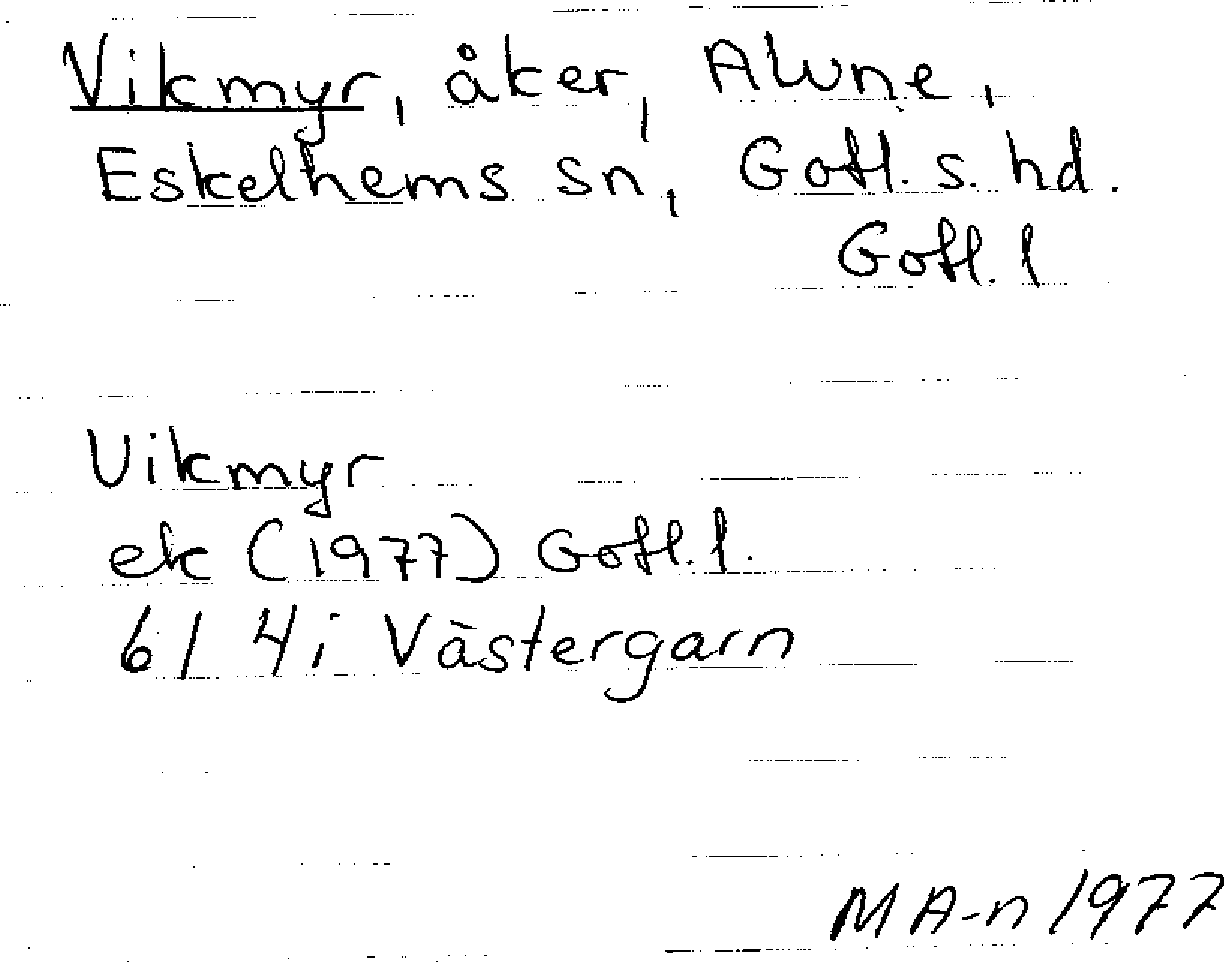 Vikmyr, åker, Alvne,
Eskelhems sn, Gotl. s. hd.
Gotl. l
Vikmyr
ek (1977) Gotl. l.
6I 4i Västergarn
MA-n 1977